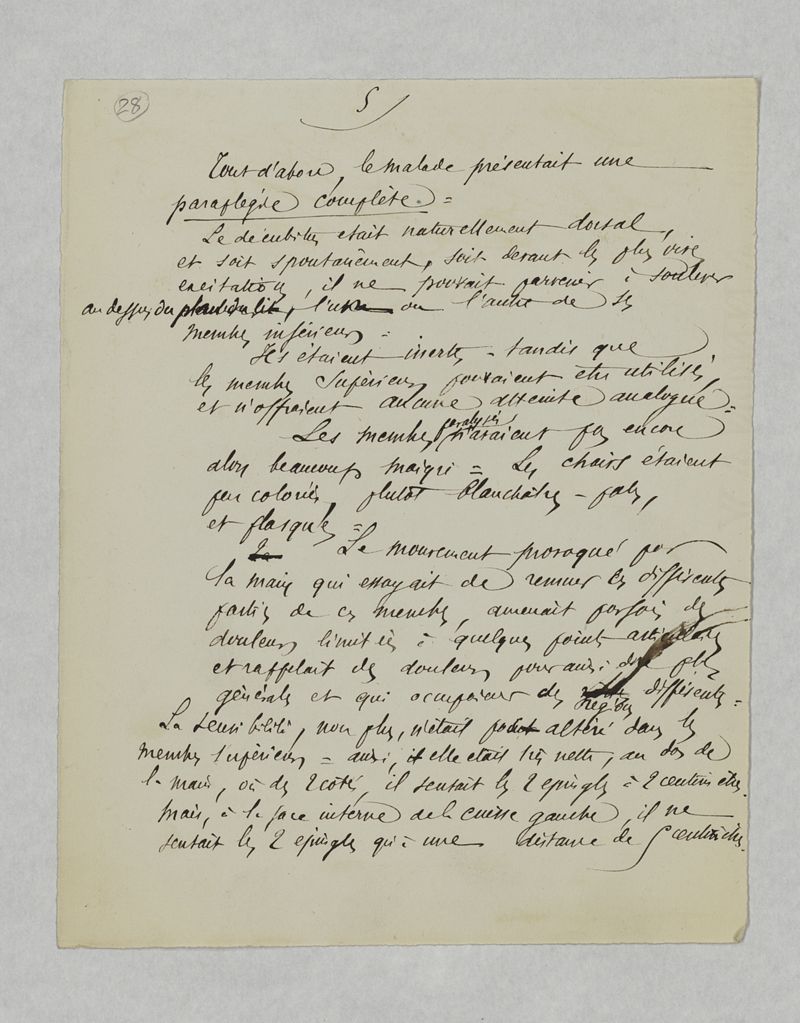 28
5
Tout d'abord, le malade présentait une
paraplégie complète. =
Le decubitus était naturellement dorsal,
et soit spontanément, soit devant les plus vives
excitations, il ne pouvait parvenir à soulever
au dessus du plan du lit, l'un ou l'autre de ses
membres inférieurs = .
Ils étaient inertes - tandis que
les membres supérieurs pouvaient être utilisés,
et n'offraient aucune atteinte analogue =
Les membres paralysés n'avaient pas encore
alors beaucoup maigri = Les chairs étaient
peu colorées, plutôt blanchâtres - pâles,
et flasques =
Le mouvement provoqué par
la main qui essayait de remuer les différentes
parties de ces membres, amenait parfois des
douleurs limitées à quelques points articulaires
et rappelait des douleurs plus
générales et qui occupaient des régions différentes =
La sensibilité, non plus, n'était point altérée dans les
membres supérieurs = aussi, elle était très nette, au dos de
la main, où des 2 côtés, il sentait les 2 épingles à 2 centimètres.
mais, à la face interne de la cuisse gauche, il ne
sentait les 2 épingles qu'à une distance de 5 centimètres.